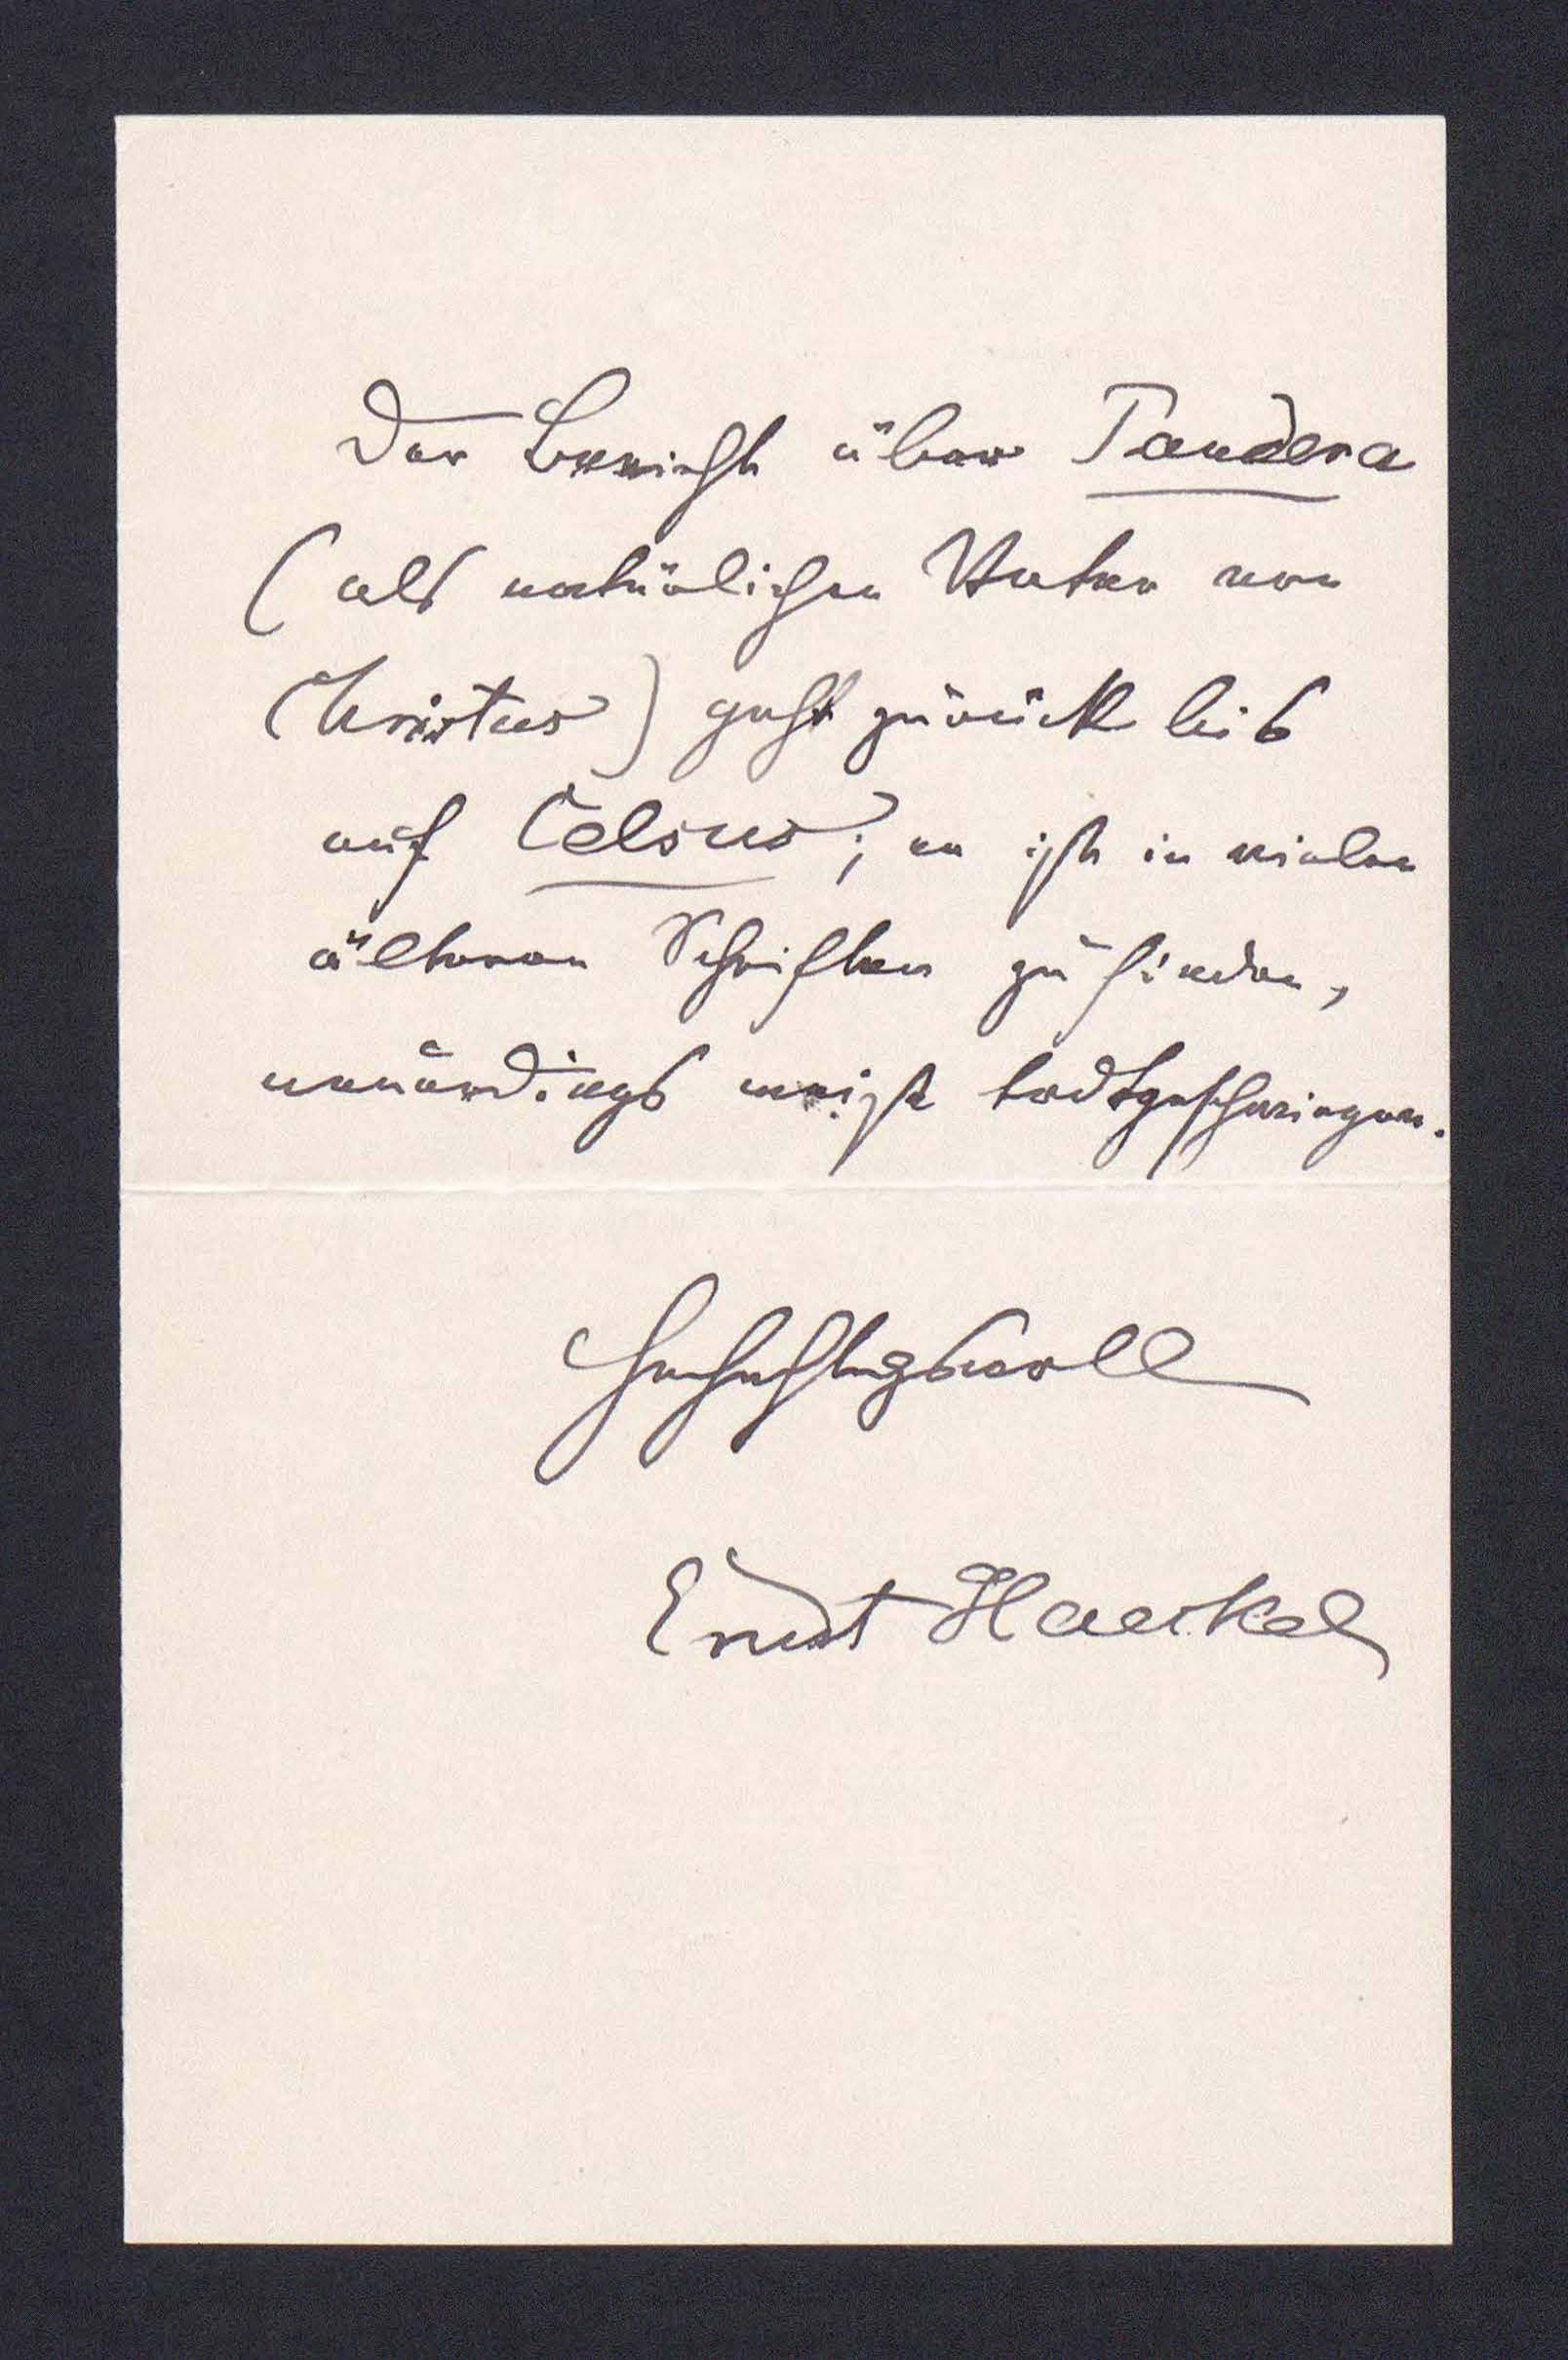 Der Bericht über Pandera
(als natürlichen Vater von
Christus) geht zurück bis
auf Celsus; er ist in vielen
älteren Schriften zu finden,
neuerdings meist todtgeschwiegen.
Hochachtungsvoll
Ernst Haeckel